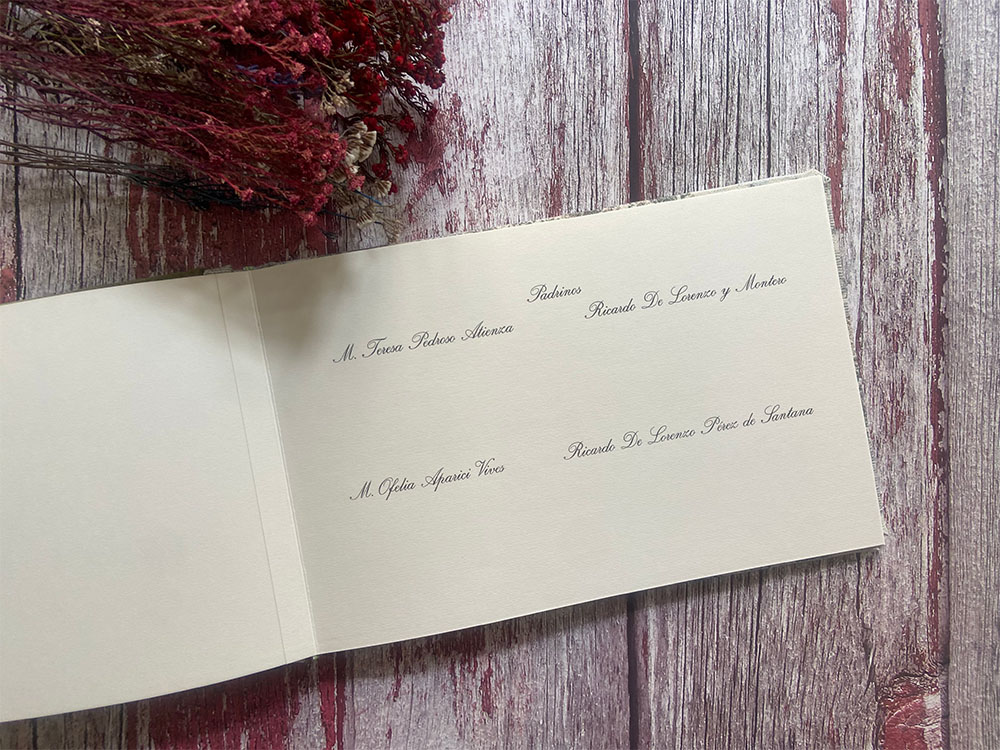 Padrinos
M. Teresa Pedroso Atienza
Ricardo De Lorenzo y Montero
M. Ofelia Aparici Vives
Ricardo De Lorenzo Pérez de Santana